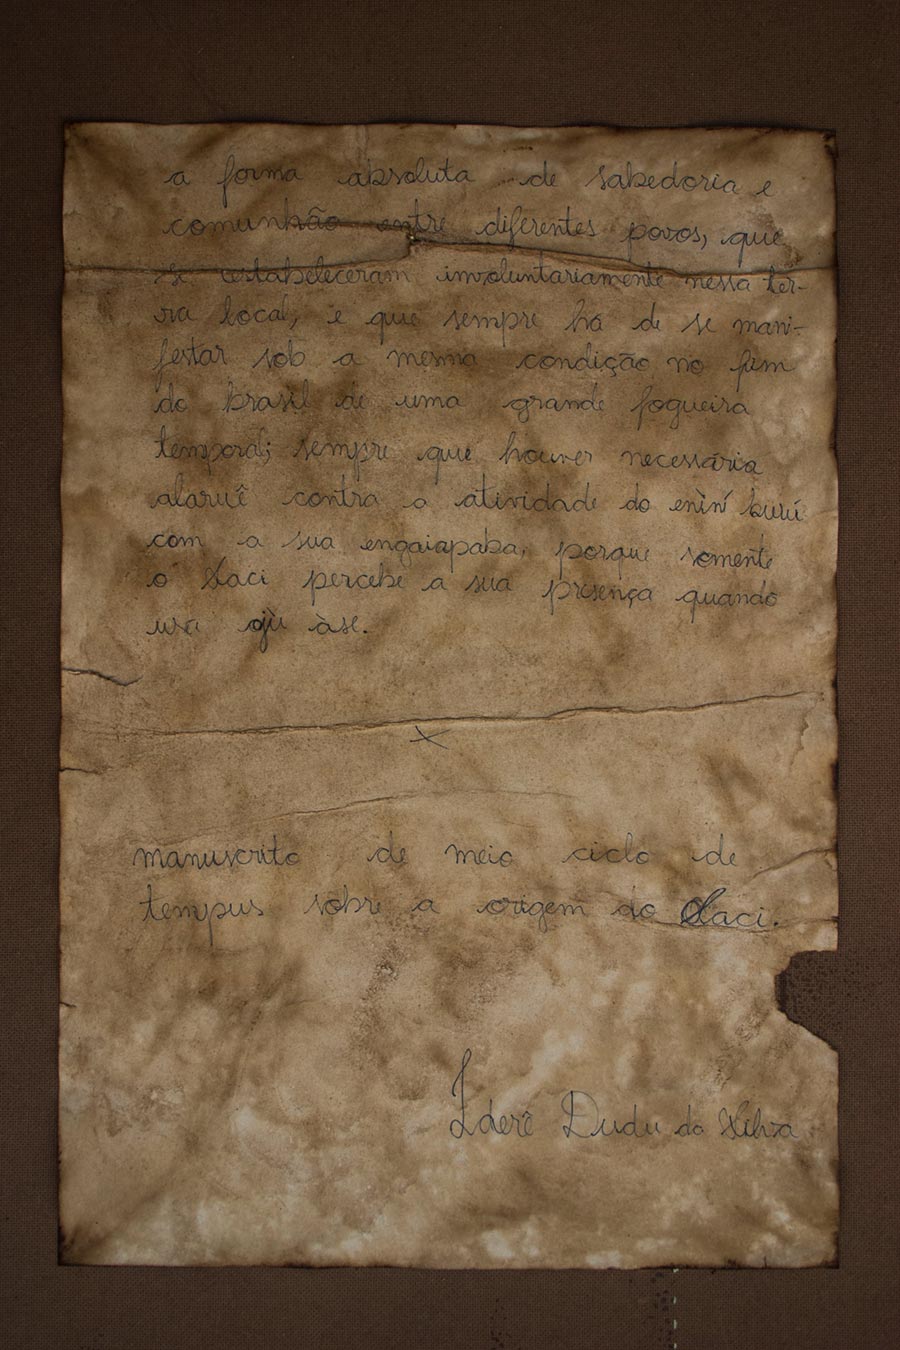 a forma absoluta de sabedoria e
comunhão entre diferentes povos, que
se estabeleceram involuntariamente nessa ter-
ra local, e que sempre há de se mani-
festar sob a mesma condição no fim
do brasil de uma grande fogueira
temporal; sempre que houver necessária
alaruê contra a atividade do enìní burú
com a sua engaiapaba, porque somente
o Saci percebe a sua presença quando
usa ojù àse.
x
manuscrito de meio ciclo de
tempus sobre a origem do Saci.
Iderê Dudu da Silva